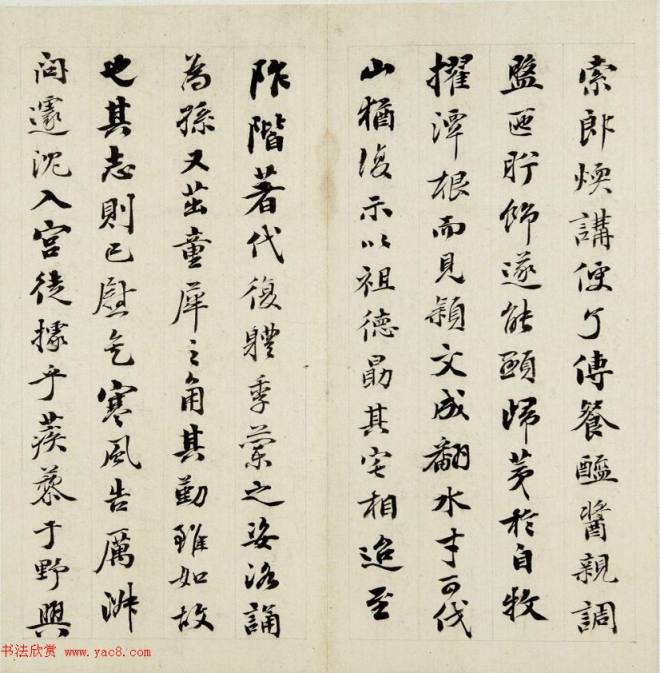 索郎煥講便了傳餐醯醬親調
盥匜盱飾遂能頤歸荑於自牧
擢潭根而見穎文成翻水才可伐
山猶復示以祖德勗其宅相迨至
阼階著代復體季蘭之姿洛誦
為孫又茁童犀之角其勤雖如故
也其志則已慰矣寒風告厲淋
問遽沈入宮徒據乎蒺藜于野興
书法欣赏 www.yac8.com